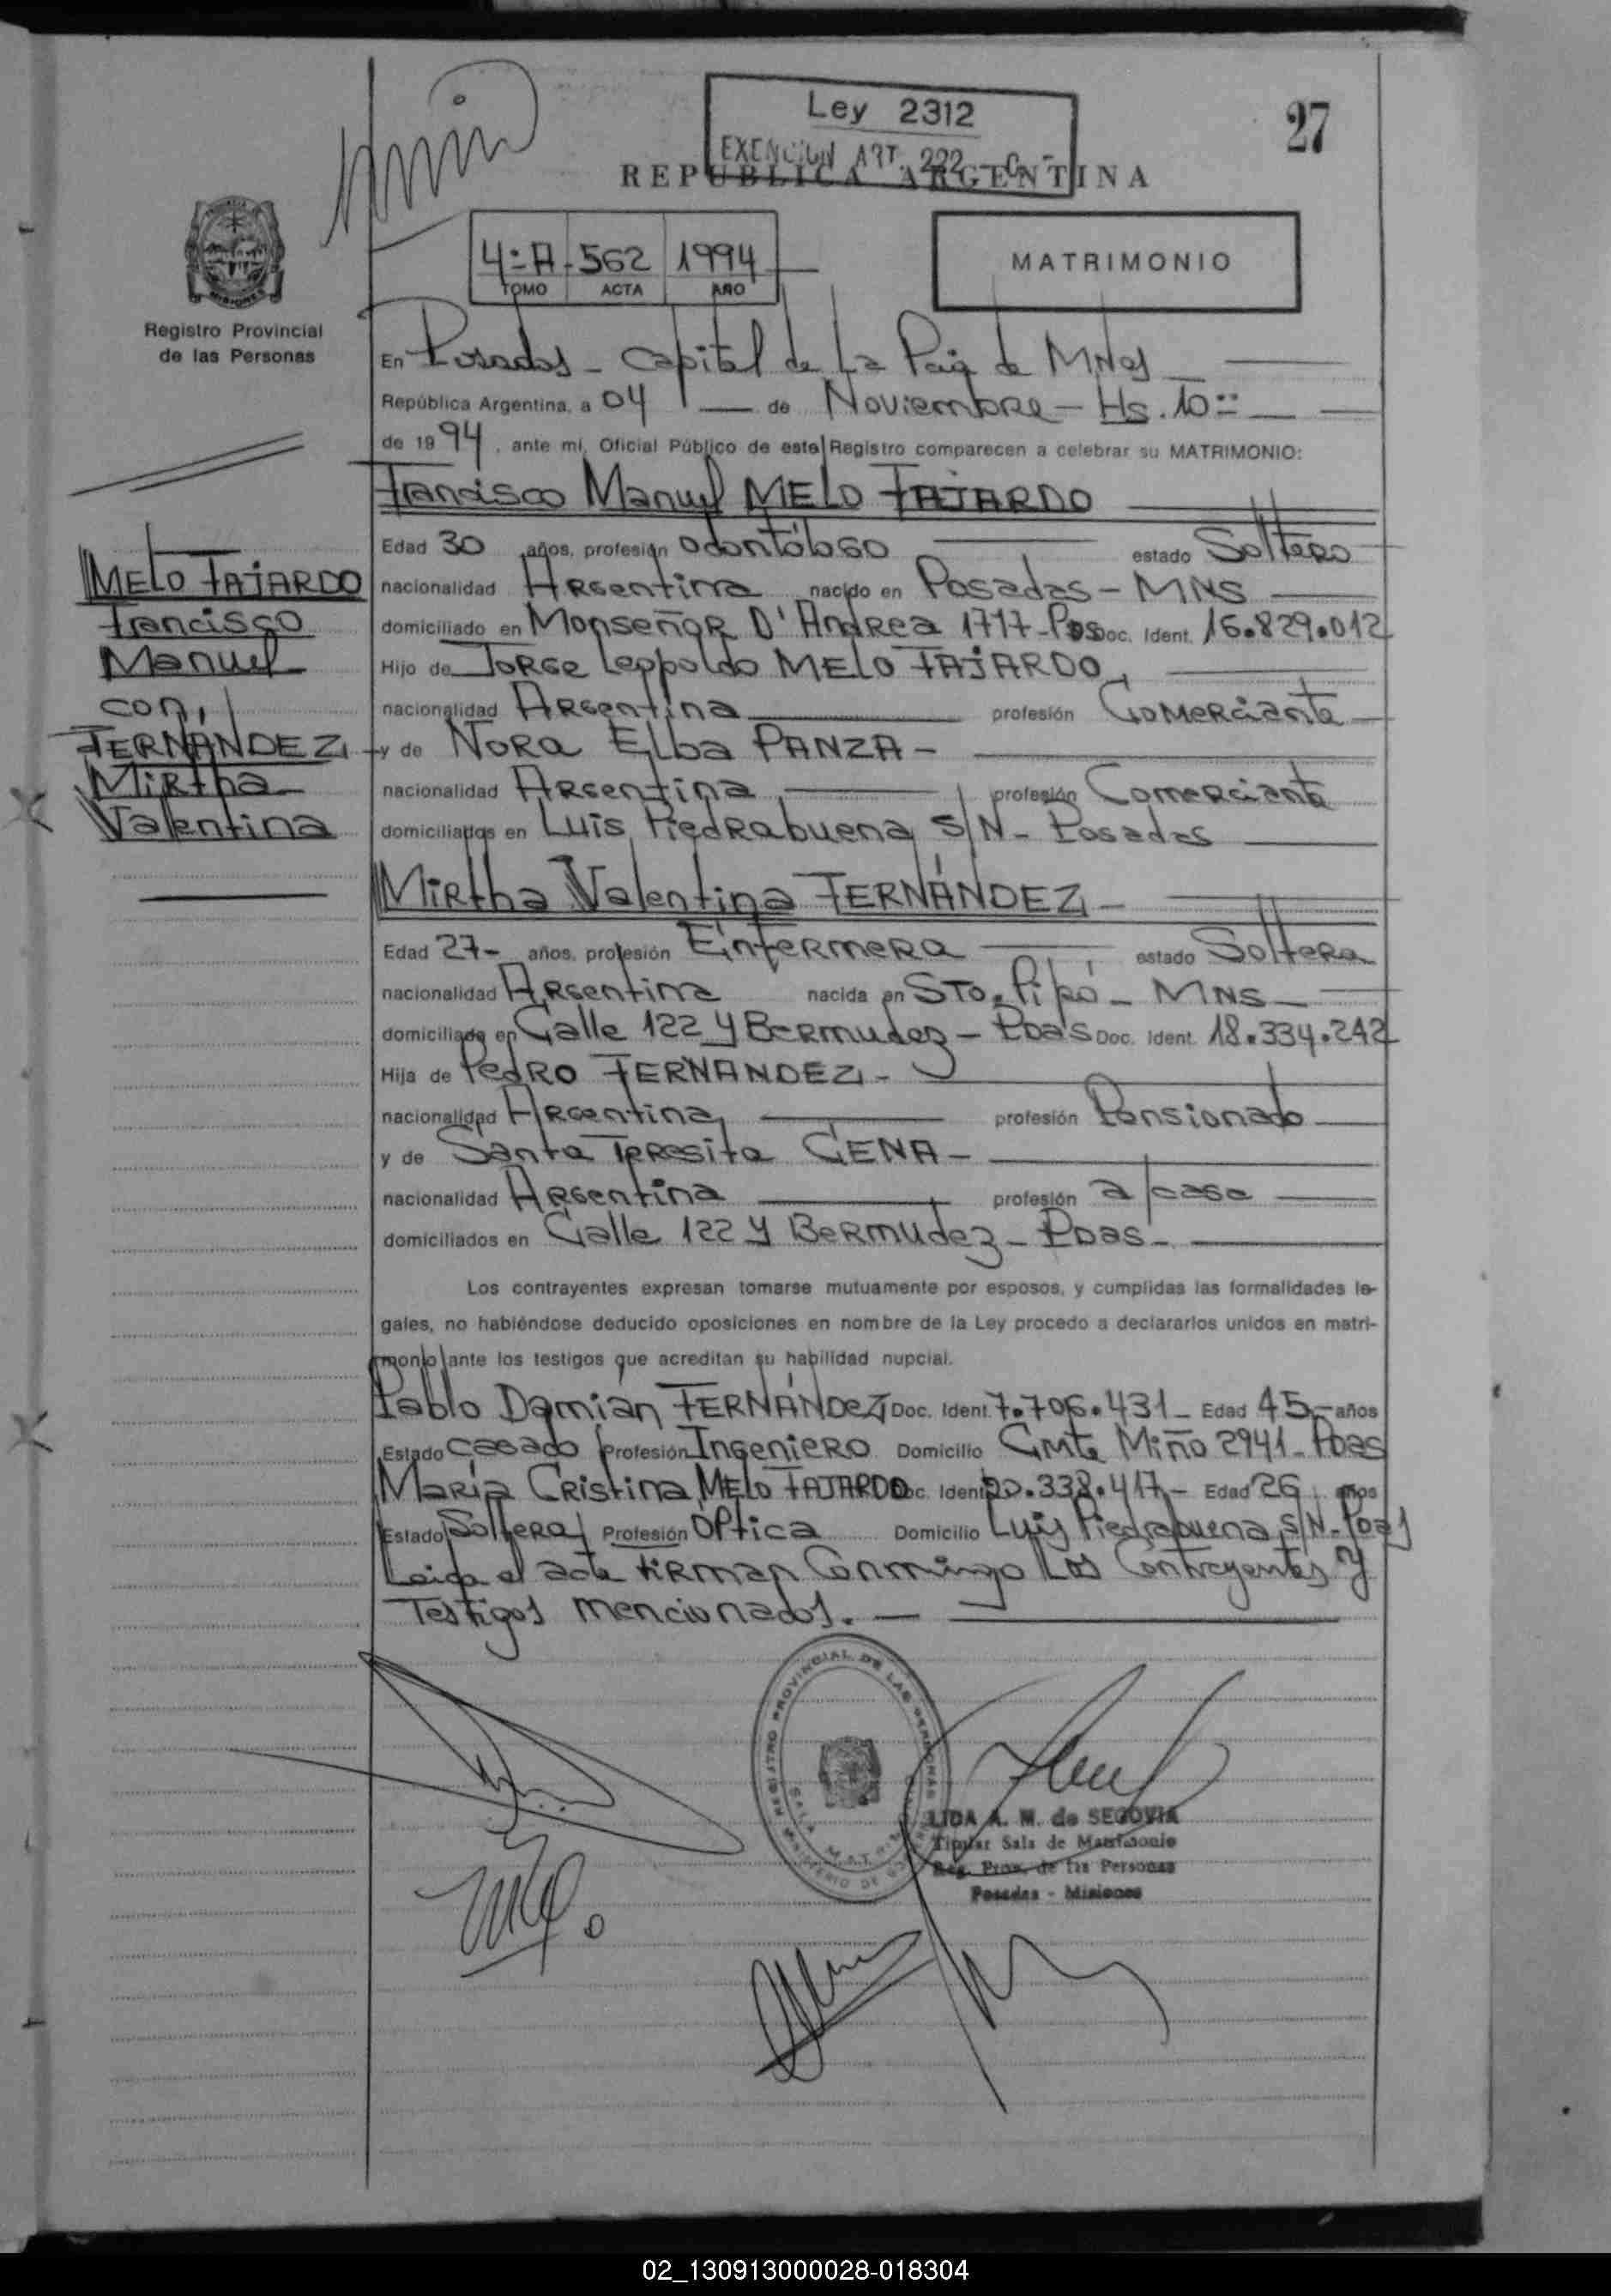 Ley 2312
EXENCION ART. 222 - C -
27
REPUBLICA ARGENTINA
4=A - 562 1994
TOMO ACTA AÑO
MATRIMONIO
Registro Provincial
de las Personas
En Posadas - Capital de La Pcia de MNes
República Argentina, a 04 de Noviembre - Hs. 10==
de 1994, ante mi, Oficial Público de este Registro comparecen a celebrar su MATRIMONIO:
Francisco Manuel MELO FAJARDO
Edad 30 años, profesión Odontólogo estado Soltero
nacionalidad Argentina nacido en Posadas - MNS
domiciliado en Monseñor D'Andrea 1717 - Pos Doc. Ident. 16.829.012
Hijo de Jorge Leopoldo MELO FAJARDO,
nacionalidad Argentina profesión Comerciante
y de Nora Elba PANZA -
nacionalidad Argentina profesión Comerciante
domiciliados en Luis Piedrabuena S/N - Posadas
MELO FAJARDO
Francisco
Manuel
con,
FERNANDEZ
Mirtha
Valentina
Mirtha Valentina FERNÁNDEZ -
Edad 27- años, profesión Enfermera estado Soltera
nacionalidad Argentina nacida en STO. Pipó - MNS
domiciliada en Calle 122 y Bermudez - Pdas Doc. Ident. 18.334.242
Hija de Pedro FERNANDEZ -
nacionalidad Argentina, profesión Pensionado
y de Santa Teresita GENA -
nacionalidad Argentina profesión a/casa
domiciliados en Calle 122 y Bermudez - Pdas -
Los contrayentes expresan tomarse mutuamente por esposos, y cumplidas las formalidades le-
gales, no habiéndose deducido oposiciones en nombre de la Ley procedo a declararlos unidos en matri-
monio ante los testigos que acreditan su habilidad nupcial.
Pablo Damián FERNÁNDEZ Doc. Ident. 7.706.431 - Edad 45.- años
Estado casado Profesión Ingeniero Domicilio Cmte Miño 2941 - Pdas
María Cristina MELO FAJARDO Doc. Ident. 20.338.417 - Edad 26 años
Estado Soltera Profesión Optica Domicilio Luis Piedrabuena S/N - Pdas
Leida el acta firman Conmigo Los Contrayentes y
Testigos mencionados. -
REGISTRO PROVINCIAL DE LAS PERSONAS
LIDA A. M. de SEGOVIA
Titular Sala de Matrimonio
Reg. Prov. de las Personas
Posadas - Misiones
02_130913000028-018304